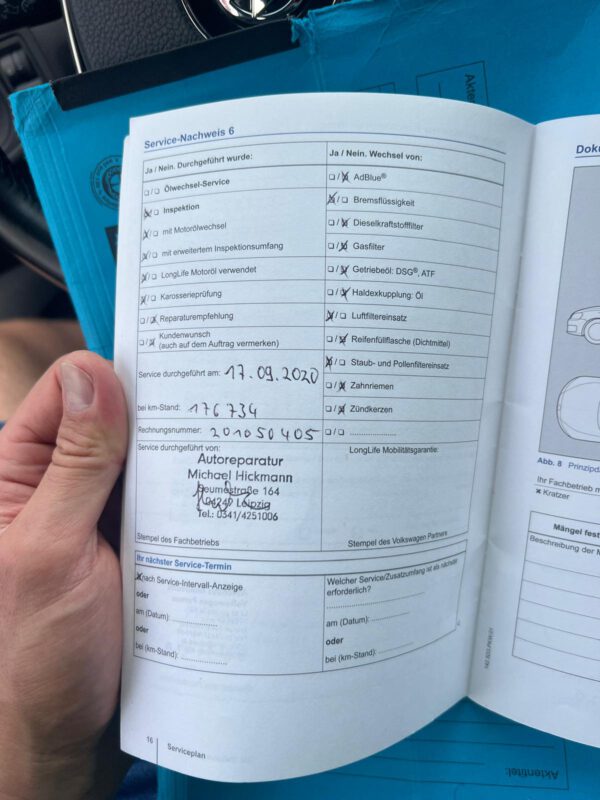 Akte
Service-Nachweis 6
Ja / Nein. Durchgeführt wurde:
❑ / ❑ Ölwechsel-Service
☒ / ❑ Inspektion
☒ / ❑ mit Motorölwechsel
☒ / ❑ mit erweitertem Inspektionsumfang
☒ / ❑ LongLife Motoröl verwendet
☒ / ❑ Karosserieprüfung
❑ / ☒ Reparaturempfehlung
❑ / ☒ Kundenwunsch
(auch auf dem Auftrag vermerken)
Service durchgeführt am: 17.09.2020
bei km-Stand: 176 734
Rechnungsnummer: 201050405
Service durchgeführt von:
Autoreparatur
Michael Hickmann
straße 164
04249 Leipzig
Tel.: 0341/4251006
Stempel des Fachbetriebs
Ja / Nein. Wechsel von:
❑ / ☒ AdBlue®
☒ / ❑ Bremsflüssigkeit
❑ / ☒ Dieselkraftstofffilter
❑ / ☒ Gasfilter
❑ / ☒ Getriebeöl: DSG®, ATF
❑ / ☒ Haldexkupplung: Öl
☒ / ❑ Luftfiltereinsatz
❑ / ☒ Reifenfüllflasche (Dichtmittel)
☒ / ❑ Staub- und Pollenfiltereinsatz
❑ / ☒ Zahnriemen
❑ / ☒ Zündkerzen
❑ / ❑ ....................
LongLife Mobilitätsgarantie:
Stempel des Volkswagen Partners
Ihr nächster Service-Termin
☒ nach Service-Intervall-Anzeige
oder
am (Datum): ....................
oder
bei (km-Stand): ....................
Welcher Service/Zusatzumfang ist als nächster
erforderlich?
....................
am (Datum): ....................
oder
bei (km-Stand): ....................
16
Serviceplan
Doku
Abb. 8 Prinzipda
Ihr Fachbetrieb m
× Kratzer
Mängel fest
Beschreibung der M
Aktentitel: